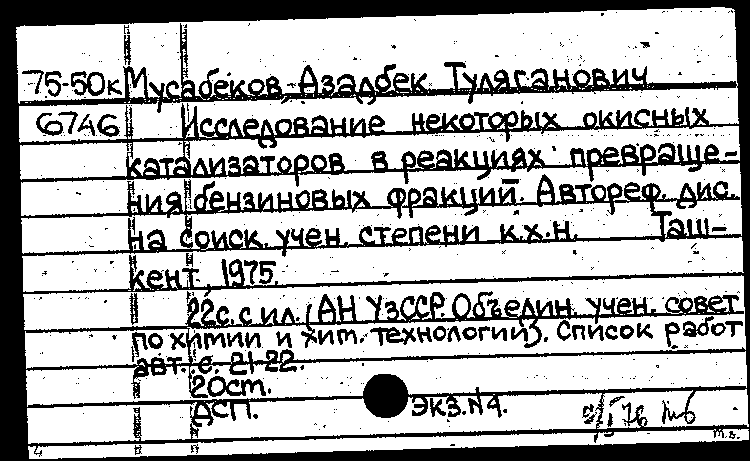 75-50к Мусабеков, Азадбек Туляганович
6746 Исследование некоторых окисных
катализаторов в реакциях превраще-
ния бензиновых фракций. Автореф. дис.
на соиск. учен. степени к.х.н. Таш-
кент, 1975.
22с. с ил. (АН УзССР. Объедин. учен. совет
по химии и хим. технологии). Список работ
авт. с. 21-22.
20ст.
ДСП. Экз.№4.
т.з.